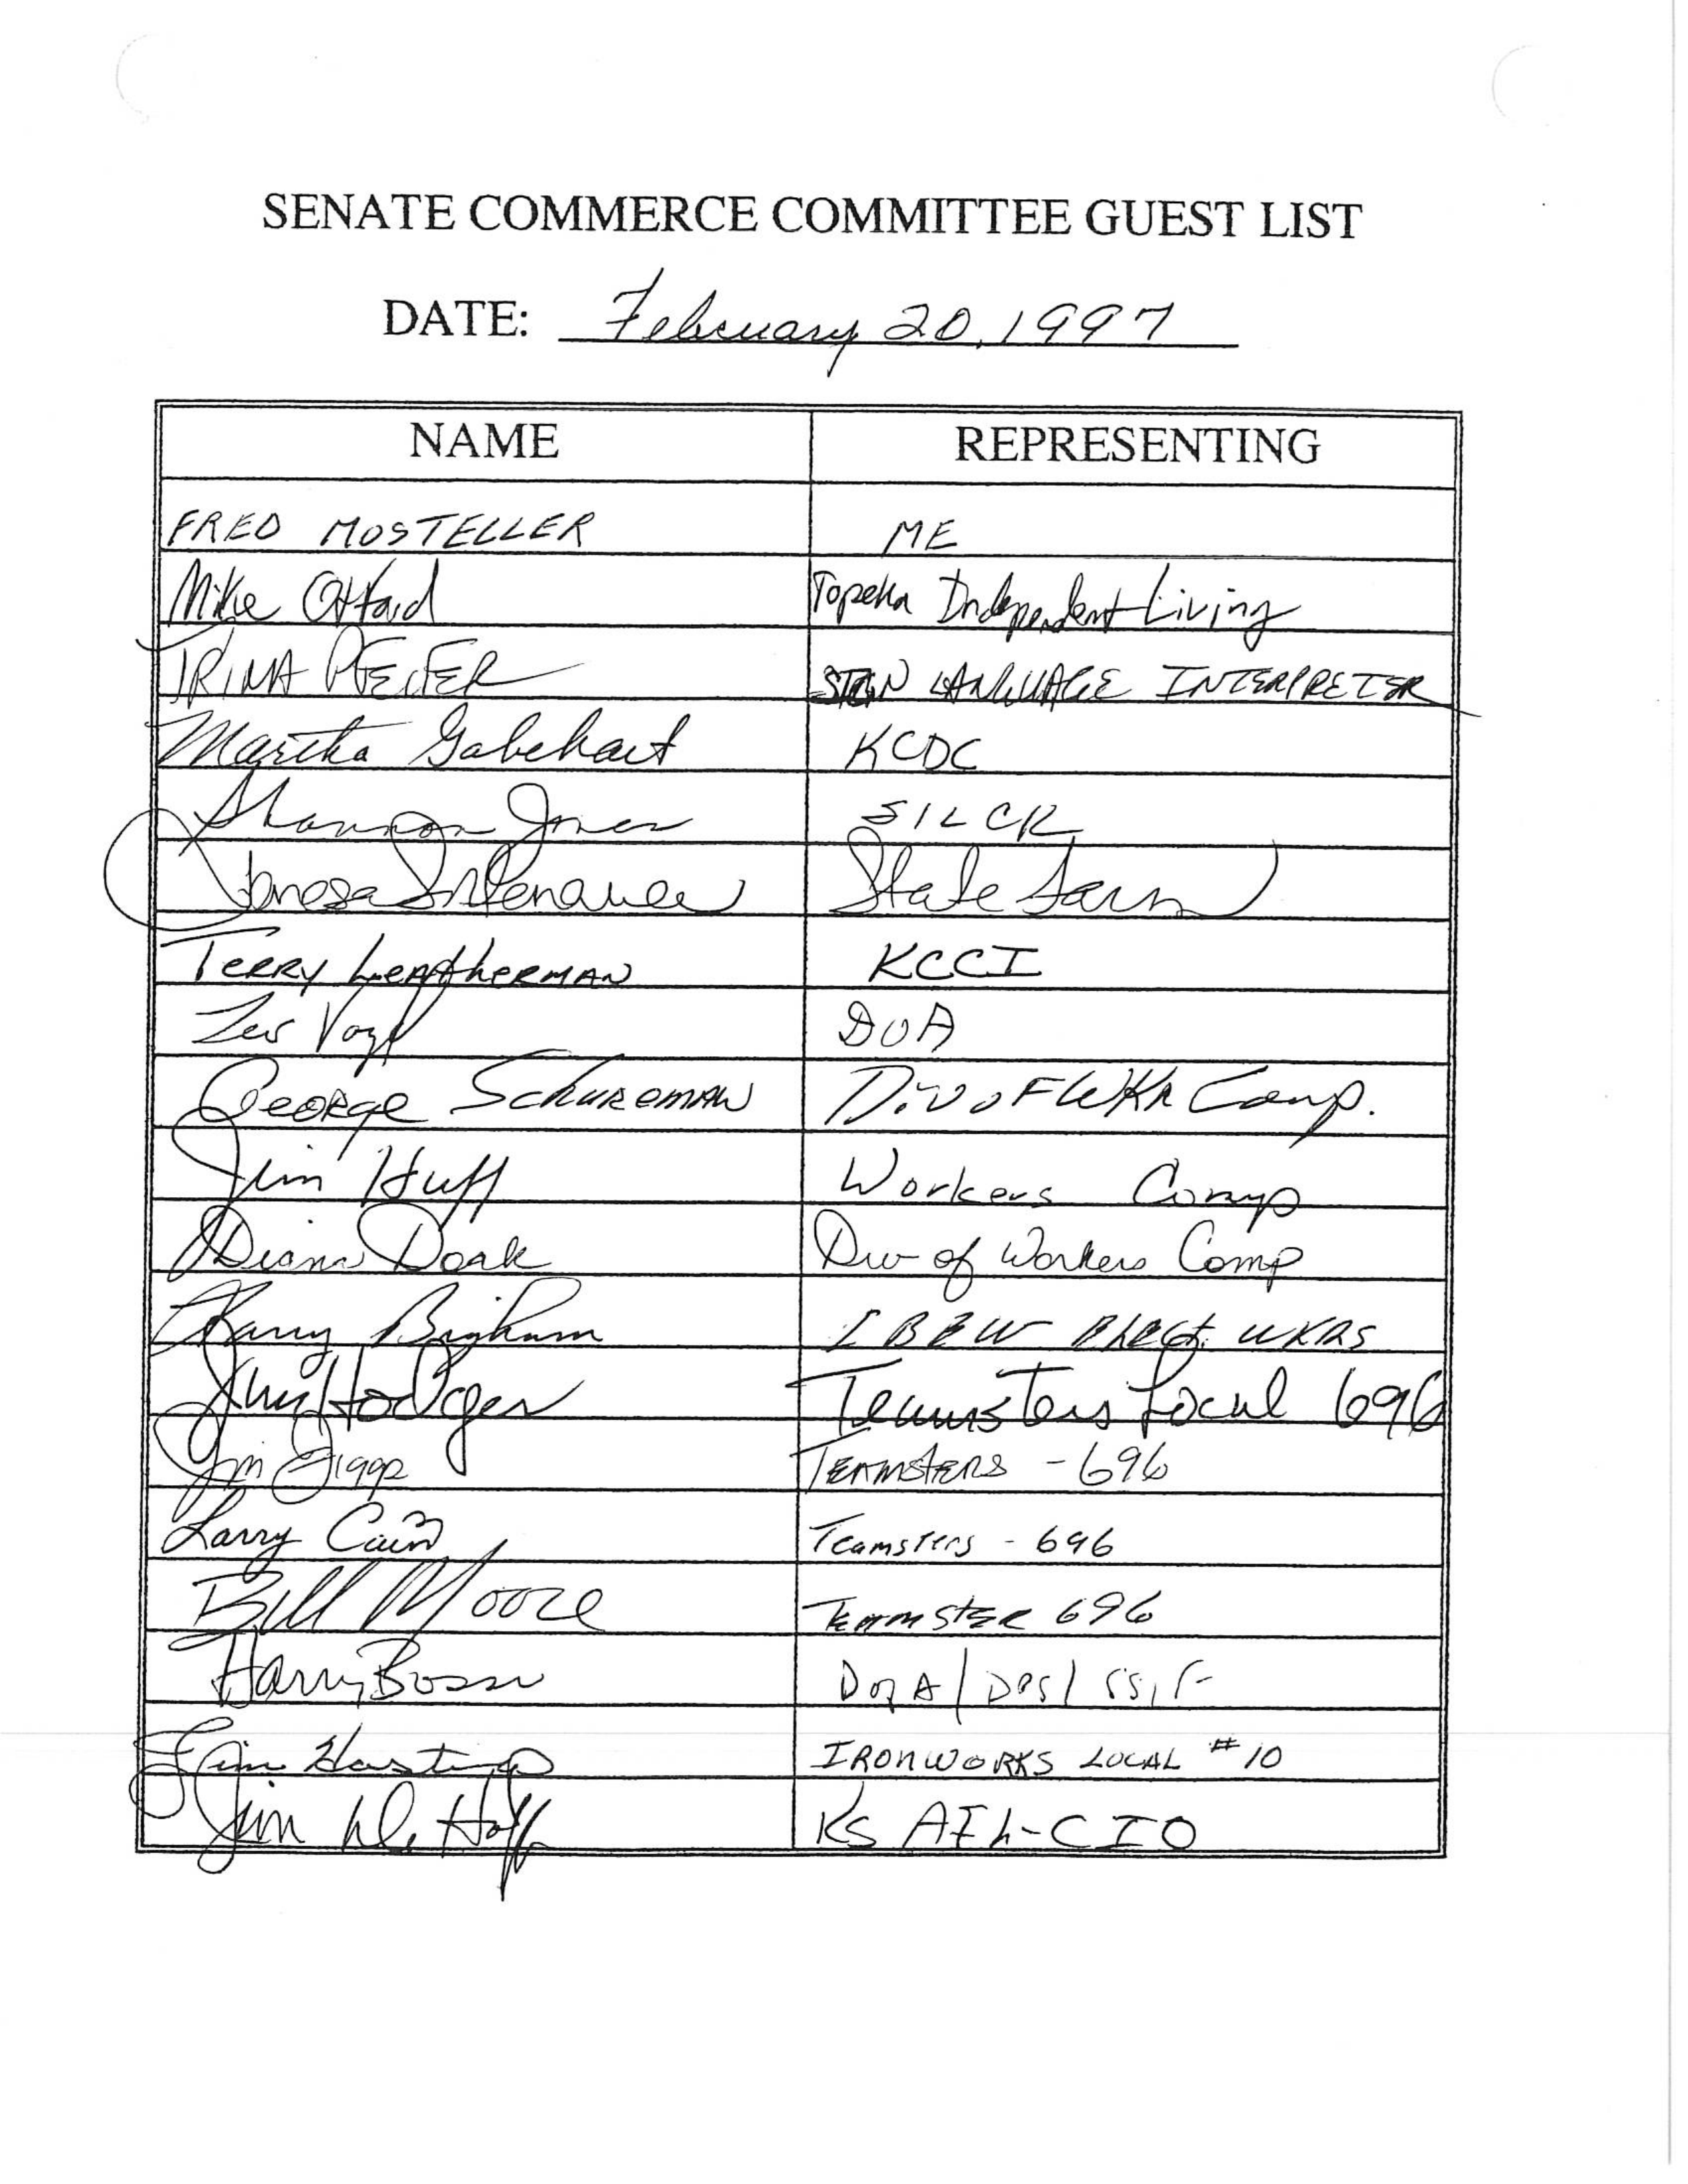 SENATE COMMERCE COMMITTEE GUEST LIST
DATE: February 20, 1997
NAME REPRESENTING
FRED MOSTELLER ME
Mike Oxford Topeka Independent Living
TRINA PFEIFER SIGN LANGUAGE INTERPRETER
Martha Gabehart KCDC
Shannon Jones SILCK
State Farm
TERRY LEATHERMAN KCCI
Les Vogt DOA
GEORGE SCHUREMAN Div OF WKR Comp.
Jim Huff Workers Comp
Diana Doak Div of Workers Comp
Larry Bigham IBEW Elect. WKRS
Hodges Teamsters Local 696
Jim TEAMSTERS - 696
Larry Cain Teamsters - 696
Bill Moore TEAMSTER 696
Harry Bossi D of A/DPS/
Jim Hastings IRONWORKS LOCAL #10
Jim DeHoff KS AFL-CIO